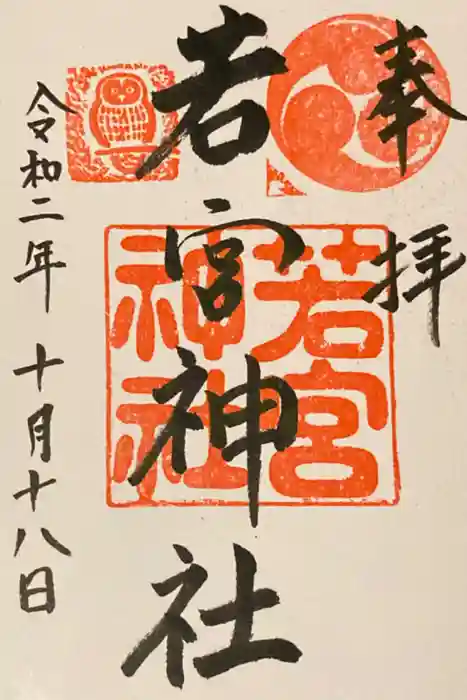 奉拝
若宮神社
若宮
神社
令和二年十月十八日